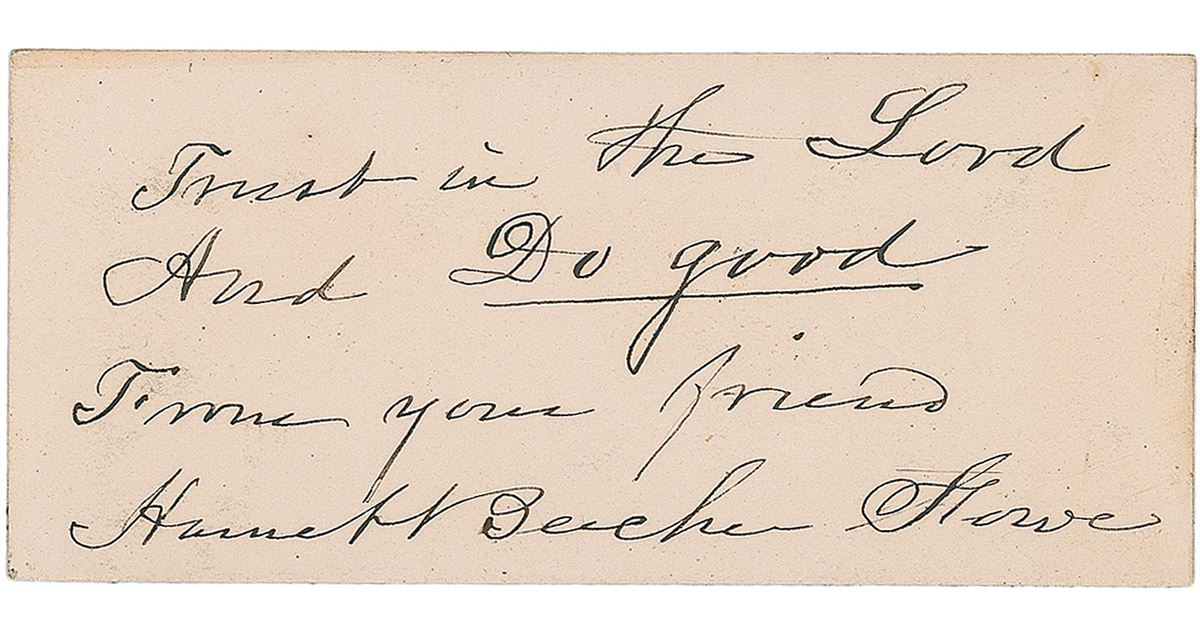 Trust in the Lord
And Do good
From your friend
Harriet Beecher Stowe